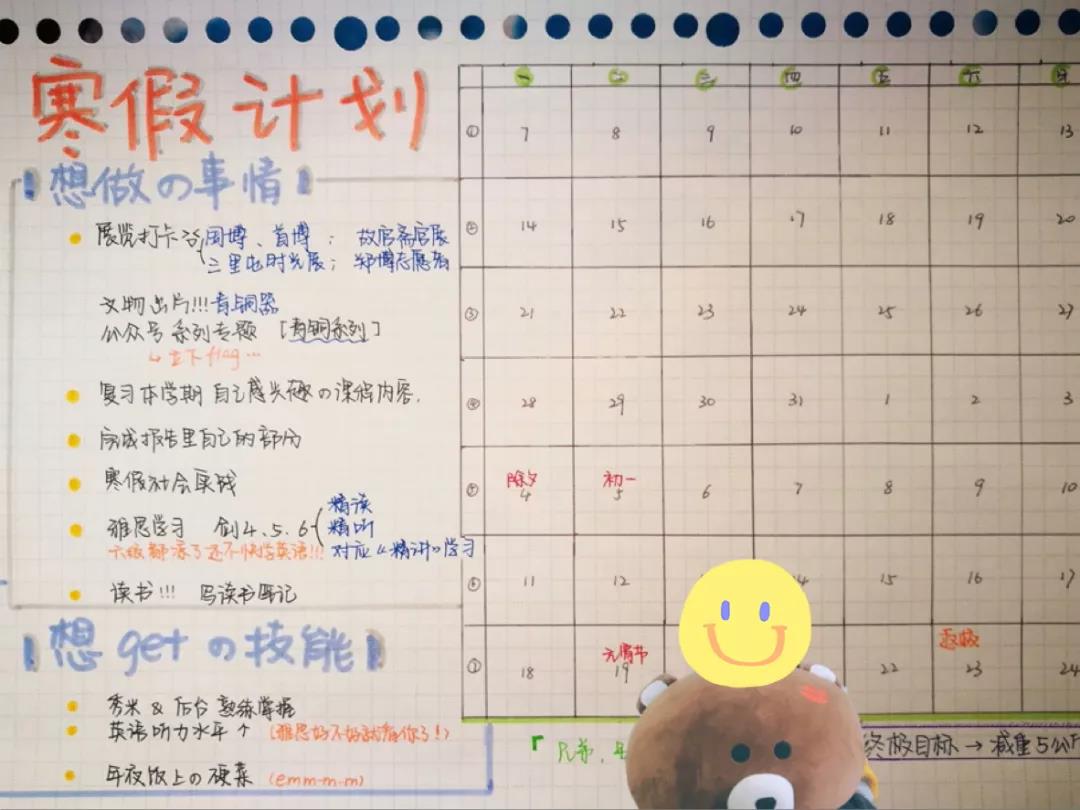 寒假计划
想做の事情
展览打卡 国博、首博; 故宫斋宫展
三里屯时光展; 郑博志愿者
文物出片!!!青铜器
公众号系列专题 [青铜系列]
↳立下flag…
复习本学期自己感兴趣の课程内容.
完成报告里自己的部分
寒假社会实践
雅思学习 剑4、5、6 精读
精听
六级都凉了还不快学英语!!! 对应《精讲》学习
读书!!! 写读书笔记
想get の技能
秀米 & 后台 熟练掌握
英语听力水平↑ (雅思好不好就看你了!)
年夜饭上の硬菜 (emm-m-m)
一 二 三 四 五 六 日
① 7 8 9 10 11 12 13
② 14 15 16 17 18 19 20
③ 21 22 23 24 25 26 27
④ 28 29 30 31 1 2 3
除夕 初一
⑤ 4 5 6 7 8 9 10
⑥ 11 12 14 15 16 17
元宵节 返校
⑦ 18 19 22 23 24
「兄弟,
终极目标→减重5公斤